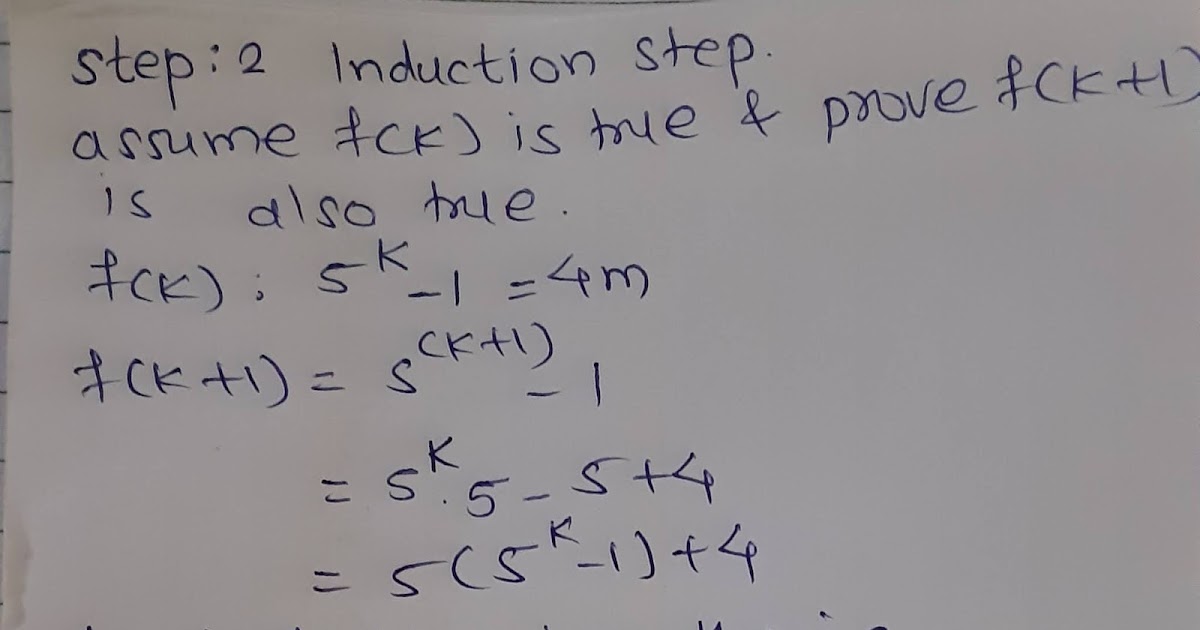 step: 2 Induction step.
assume f(k) is true & prove f(k+1)
is also true.
f(k) : 5^k - 1 = 4m
f(k+1) = 5^(k+1) - 1
= 5^k . 5 - 5 + 4
= 5(5^k - 1) + 4